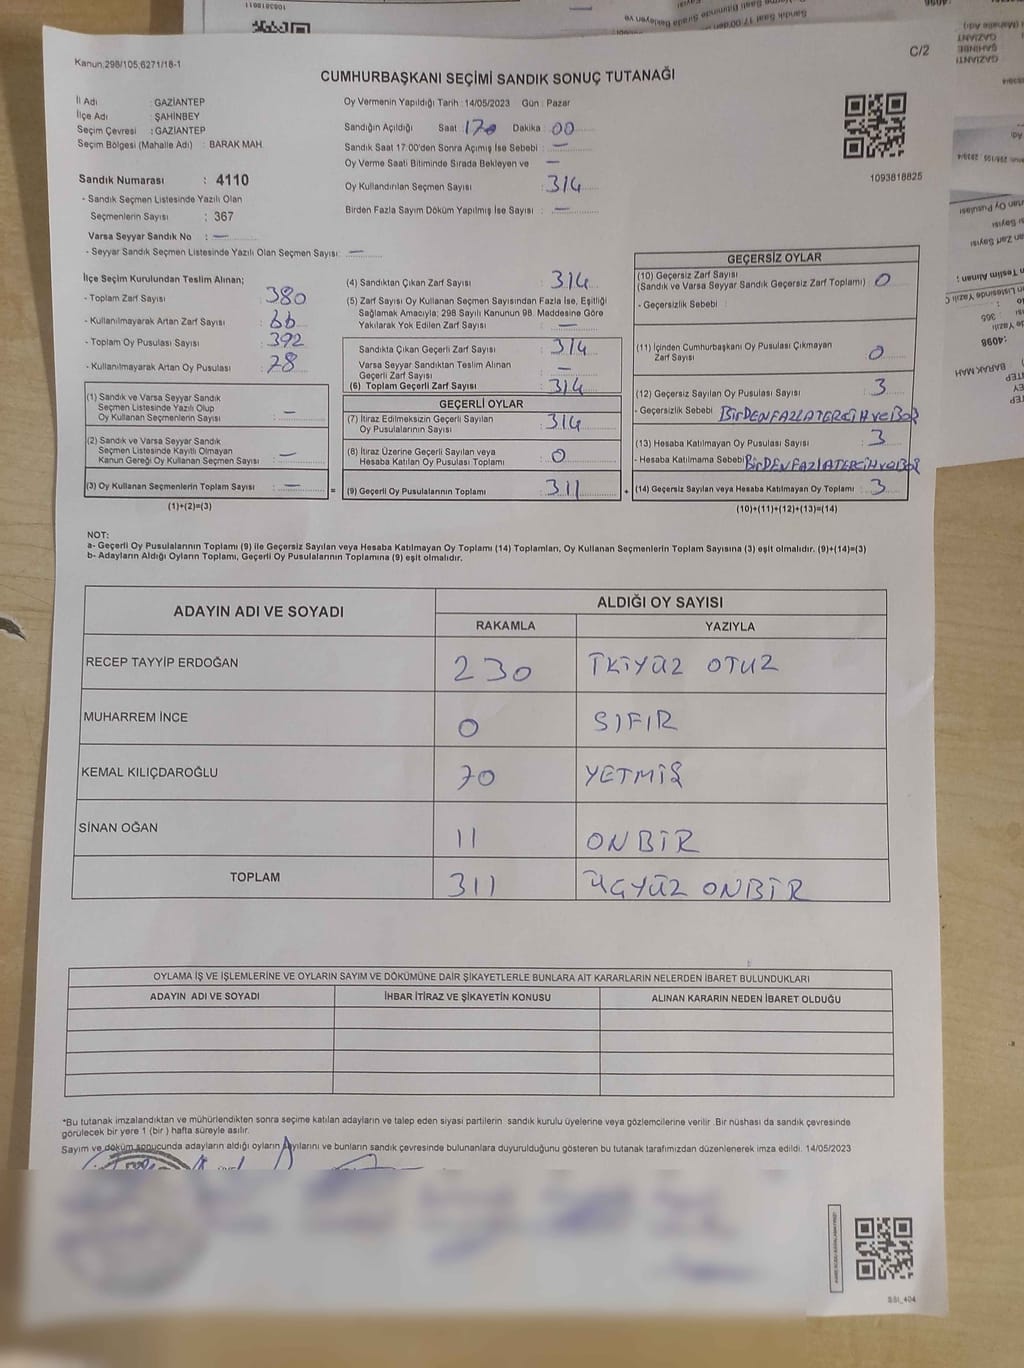 Kanun,298/105,6271/18-1
C/2
CUMHURBAŞKANI SEÇİMİ SANDIK SONUÇ TUTANAĞI
İl Adı : GAZİANTEP
İlçe Adı : ŞAHİNBEY
Seçim Çevresi : GAZİANTEP
Seçim Bölgesi (Mahalle Adı) : BARAK MAH.
Sandık Numarası : 4110
- Sandık Seçmen Listesinde Yazılı Olan
Seçmenlerin Sayısı : 367
Varsa Seyyar Sandık No : —
- Seyyar Sandık Seçmen Listesinde Yazılı Olan Seçmen Sayısı: —
Oy Vermenin Yapıldığı Tarih : 14/05/2023 Gün : Pazar
Sandığın Açıldığı Saat : 170 Dakika : 00
Sandık Saat 17:00'den Sonra Açımış İse Sebebi : —
Oy Verme Saati Bitiminde Sırada Bekleyen ve —
Oy Kullandırılan Seçmen Sayısı : 314
Birden Fazla Sayım Döküm Yapılmış İse Sayısı : —
1093818825
İlçe Seçim Kurulundan Teslim Alınan;
- Toplam Zarf Sayısı : 380
- Kullanılmayarak Artan Zarf Sayısı : 66
- Toplam Oy Pusulası Sayısı : 392
- Kullanılmayarak Artan Oy Pusulası : 78
(1) Sandık ve Varsa Seyyar Sandık
Seçmen Listesinde Yazılı Olup
Oy Kullanan Seçmenlerin Sayısı : —
(2) Sandık ve Varsa Seyyar Sandık
Seçmen Listesinde Kayıtlı Olmayan
Kanun Gereği Oy Kullanan Seçmen Sayısı : —
(3) Oy Kullanan Seçmenlerin Toplam Sayısı : —
(1)+(2)=(3)
(4) Sandıktan Çıkan Zarf Sayısı : 314
(5) Zarf Sayısı Oy Kullanan Seçmen Sayısından Fazla İse, Eşitliği
Sağlamak Amacıyla; 298 Sayılı Kanunun 98. Maddesine Göre
Yakılarak Yok Edilen Zarf Sayısı : —
Sandıkta Çıkan Geçerli Zarf Sayısı : 314
Varsa Seyyar Sandıktan Teslim Alınan
Geçerli Zarf Sayısı : —
(6) Toplam Geçerli Zarf Sayısı : 314
GEÇERLİ OYLAR
(7) İtiraz Edilmeksizin Geçerli Sayılan
Oy Pusulalarının Sayısı : 314
(8) İtiraz Üzerine Geçerli Sayılan veya
Hesaba Katılan Oy Pusulası Toplamı : 0
= (9) Geçerli Oy Pusulalarının Toplamı : 311 +
GEÇERSİZ OYLAR
(10) Geçersiz Zarf Sayısı
(Sandık ve Varsa Seyyar Sandık Geçersiz Zarf Toplamı) : 0
- Geçersizlik Sebebi :
(11) İçinden Cumhurbaşkanı Oy Pusulası Çıkmayan
Zarf Sayısı : 0
(12) Geçersiz Sayılan Oy Pusulası Sayısı : 3
- Geçersizlik Sebebi : BİRDEN FAZLA TERCİH ve BOŞ
(13) Hesaba Katılmayan Oy Pusulası Sayısı : 3
- Hesaba Katılmama Sebebi: BİRDEN FAZLA TERCİH ve BOŞ
(14) Geçersiz Sayılan veya Hesaba Katılmayan Oy Toplamı : 3
(10)+(11)+(12)+(13)=(14)
NOT:
a- Geçerli Oy Pusulalarının Toplamı (9) ile Geçersiz Sayılan veya Hesaba Katılmayan Oy Toplamı (14) Toplamları, Oy Kullanan Seçmenlerin Toplam Sayısına (3) eşit olmalıdır. (9)+(14)=(3)
b- Adayların Aldığı Oyların Toplamı, Geçerli Oy Pusulalarının Toplamına (9) eşit olmalıdır.
ADAYIN ADI VE SOYADI ALDIĞI OY SAYISI
RAKAMLA YAZIYLA
RECEP TAYYİP ERDOĞAN 230 İKİYÜZ OTUZ
MUHARREM İNCE 0 SIFIR
KEMAL KILIÇDAROĞLU 70 YETMİŞ
SİNAN OĞAN 11 ONBİR
TOPLAM 311 ÜÇYÜZ ONBİR
OYLAMA İŞ VE İŞLEMLERİNE VE OYLARIN SAYIM VE DÖKÜMÜNE DAİR ŞİKAYETLERLE BUNLARA AİT KARARLARIN NELERDEN İBARET BULUNDUKLARI
ADAYIN ADI VE SOYADI İHBAR İTİRAZ VE ŞİKAYETİN KONUSU ALINAN KARARIN NEDEN İBARET OLDUĞU
*Bu tutanak imzalandıktan ve mühürlendikten sonra seçime katılan adayların ve talep eden siyasi partilerin sandık kurulu üyelerine veya gözlemcilerine verilir. Bir nüshası da sandık çevresinde
görülecek bir yere 1 (bir) hafta süreyle asılır.
Sayım ve döküm sonucunda adayların aldığı oyların sayılarını ve bunların sandık çevresinde bulunanlara duyurulduğunu gösteren bu tutanak tarafımızdan düzenlenerek imza edildi. 14/05/2023
SSI_404